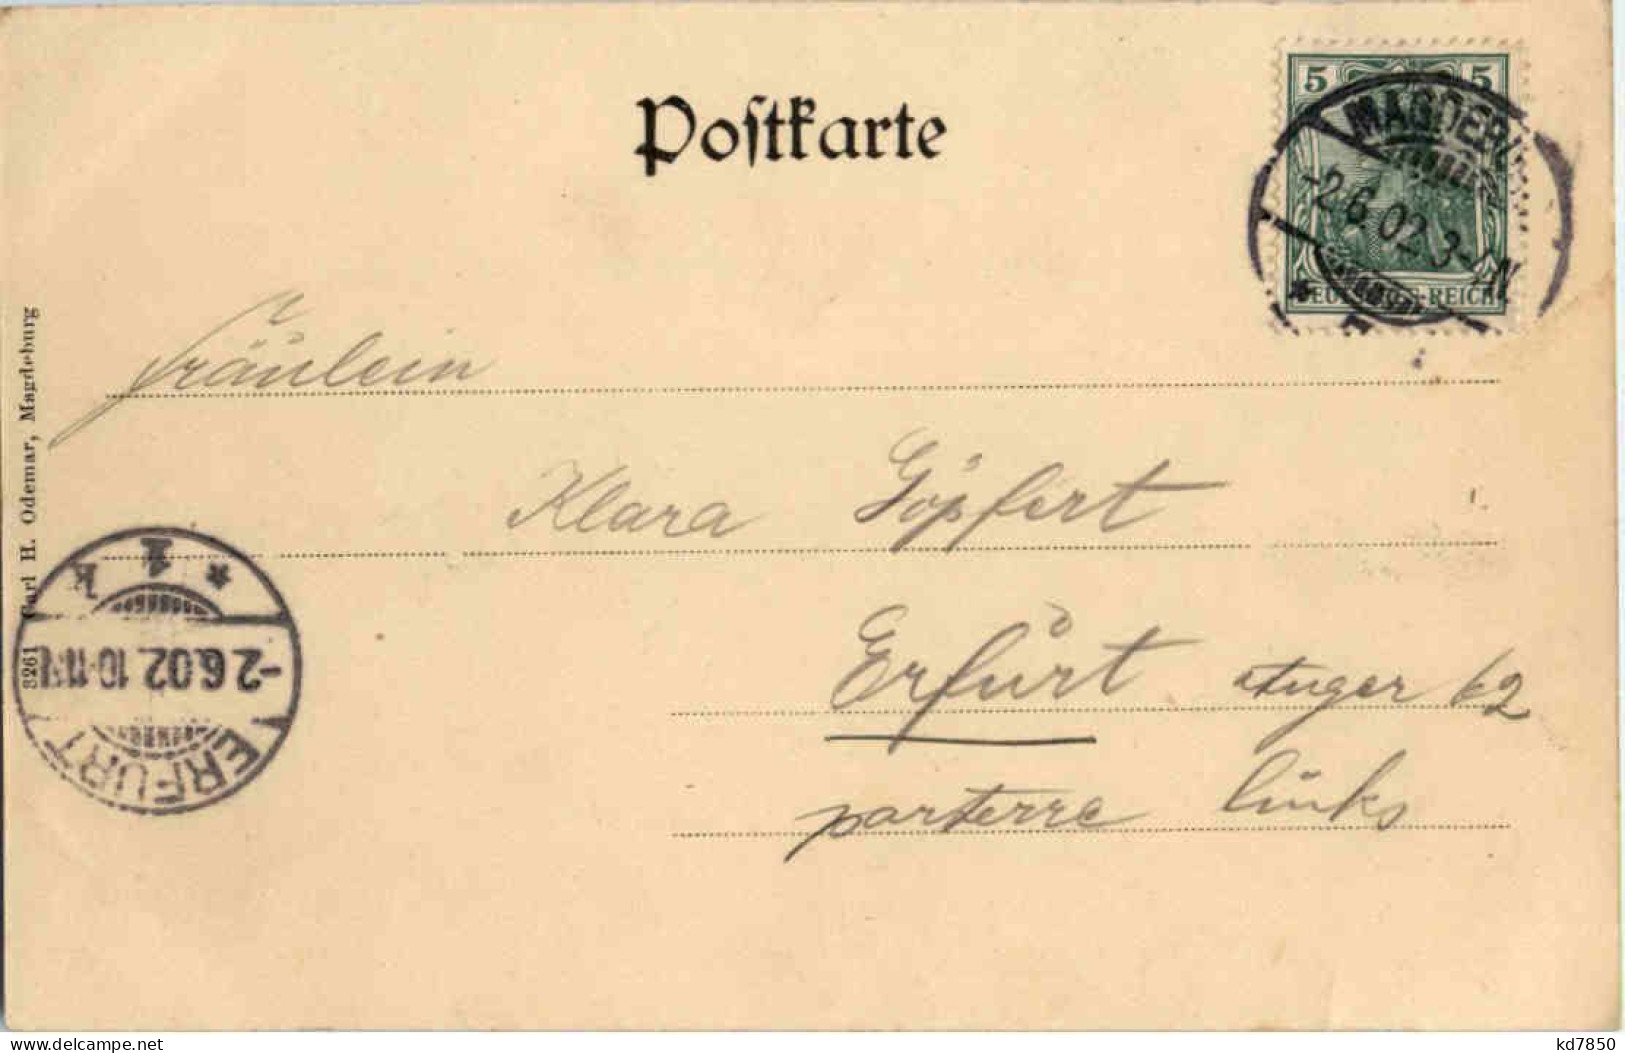 Postkarte
5 5
DEUTSCHES REICH
MAGDEBURG
-2.6.02.3-4N
Fräulein
Klara Göpfert
Erfurt Anger 62
parterre links
3261 Carl H. Odemar, Magdeburg
ERFURT
-2.6.02.10-11N
* 1 k
kd7850